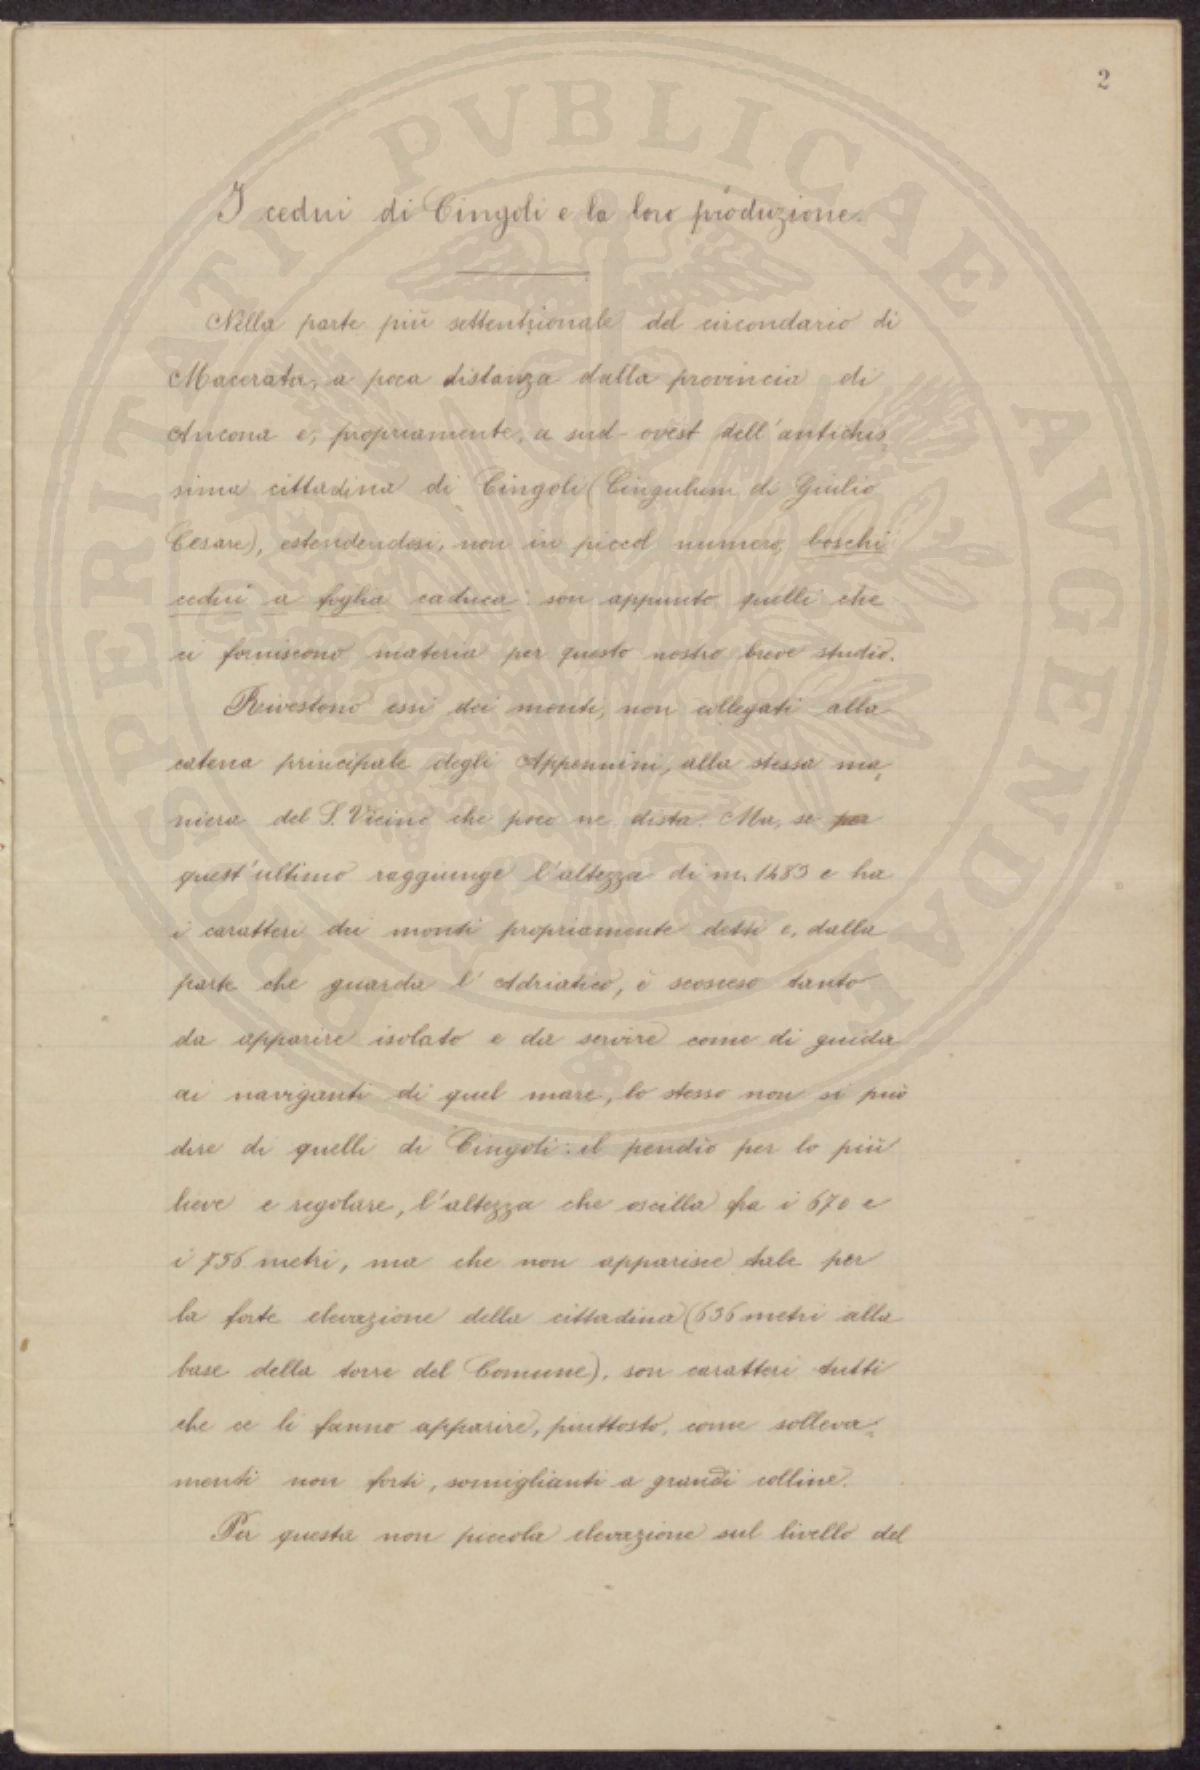 2
I cedui di Cingoli e la loro produzione.
Nella parte più settentrionale del circondario di
Macerata, a poca distanza dalla provincia di
Ancona e, propriamente, a sud-ovest dell'antichis„
sima cittadina di Cingoli (Cingulum di Giulio
Cesare), estendendosi, non in piccol numero, boschi
cedui a foglia caduca: son appunto quelli che
ci forniscono materia per questo nostro breve studio.
Rivestono essi dei monti, non collegati alla
catena principale degli Appennini, alla stessa ma„
niera del S. Vicino che poco ne dista. Ma, se
quest'ultimo raggiunge l'altezza di m. 1483 e ha
i caratteri dei monti propriamente detti e, dalla
parte che guarda l'Adriatico, è scosceso tanto
da apparire isolato e da servire come di guida
ai naviganti di quel mare, lo stesso non si può
dire di quelli di Cingoli: il pendìo per lo più
lieve e regolare, l'altezza che oscilla fra i 670 e
i 756 metri, ma che non apparisce tale per
la forte elevazione della cittadina (636 metri alla
base della torre del Comune), son caratteri tutti
che ce li fanno apparire, piuttosto, come solleva„
menti non forti, somiglianti a grandi colline.
Per questa non piccola elevazione sul livello del
PROSPERITATI PVBLICAE AVGENDAE